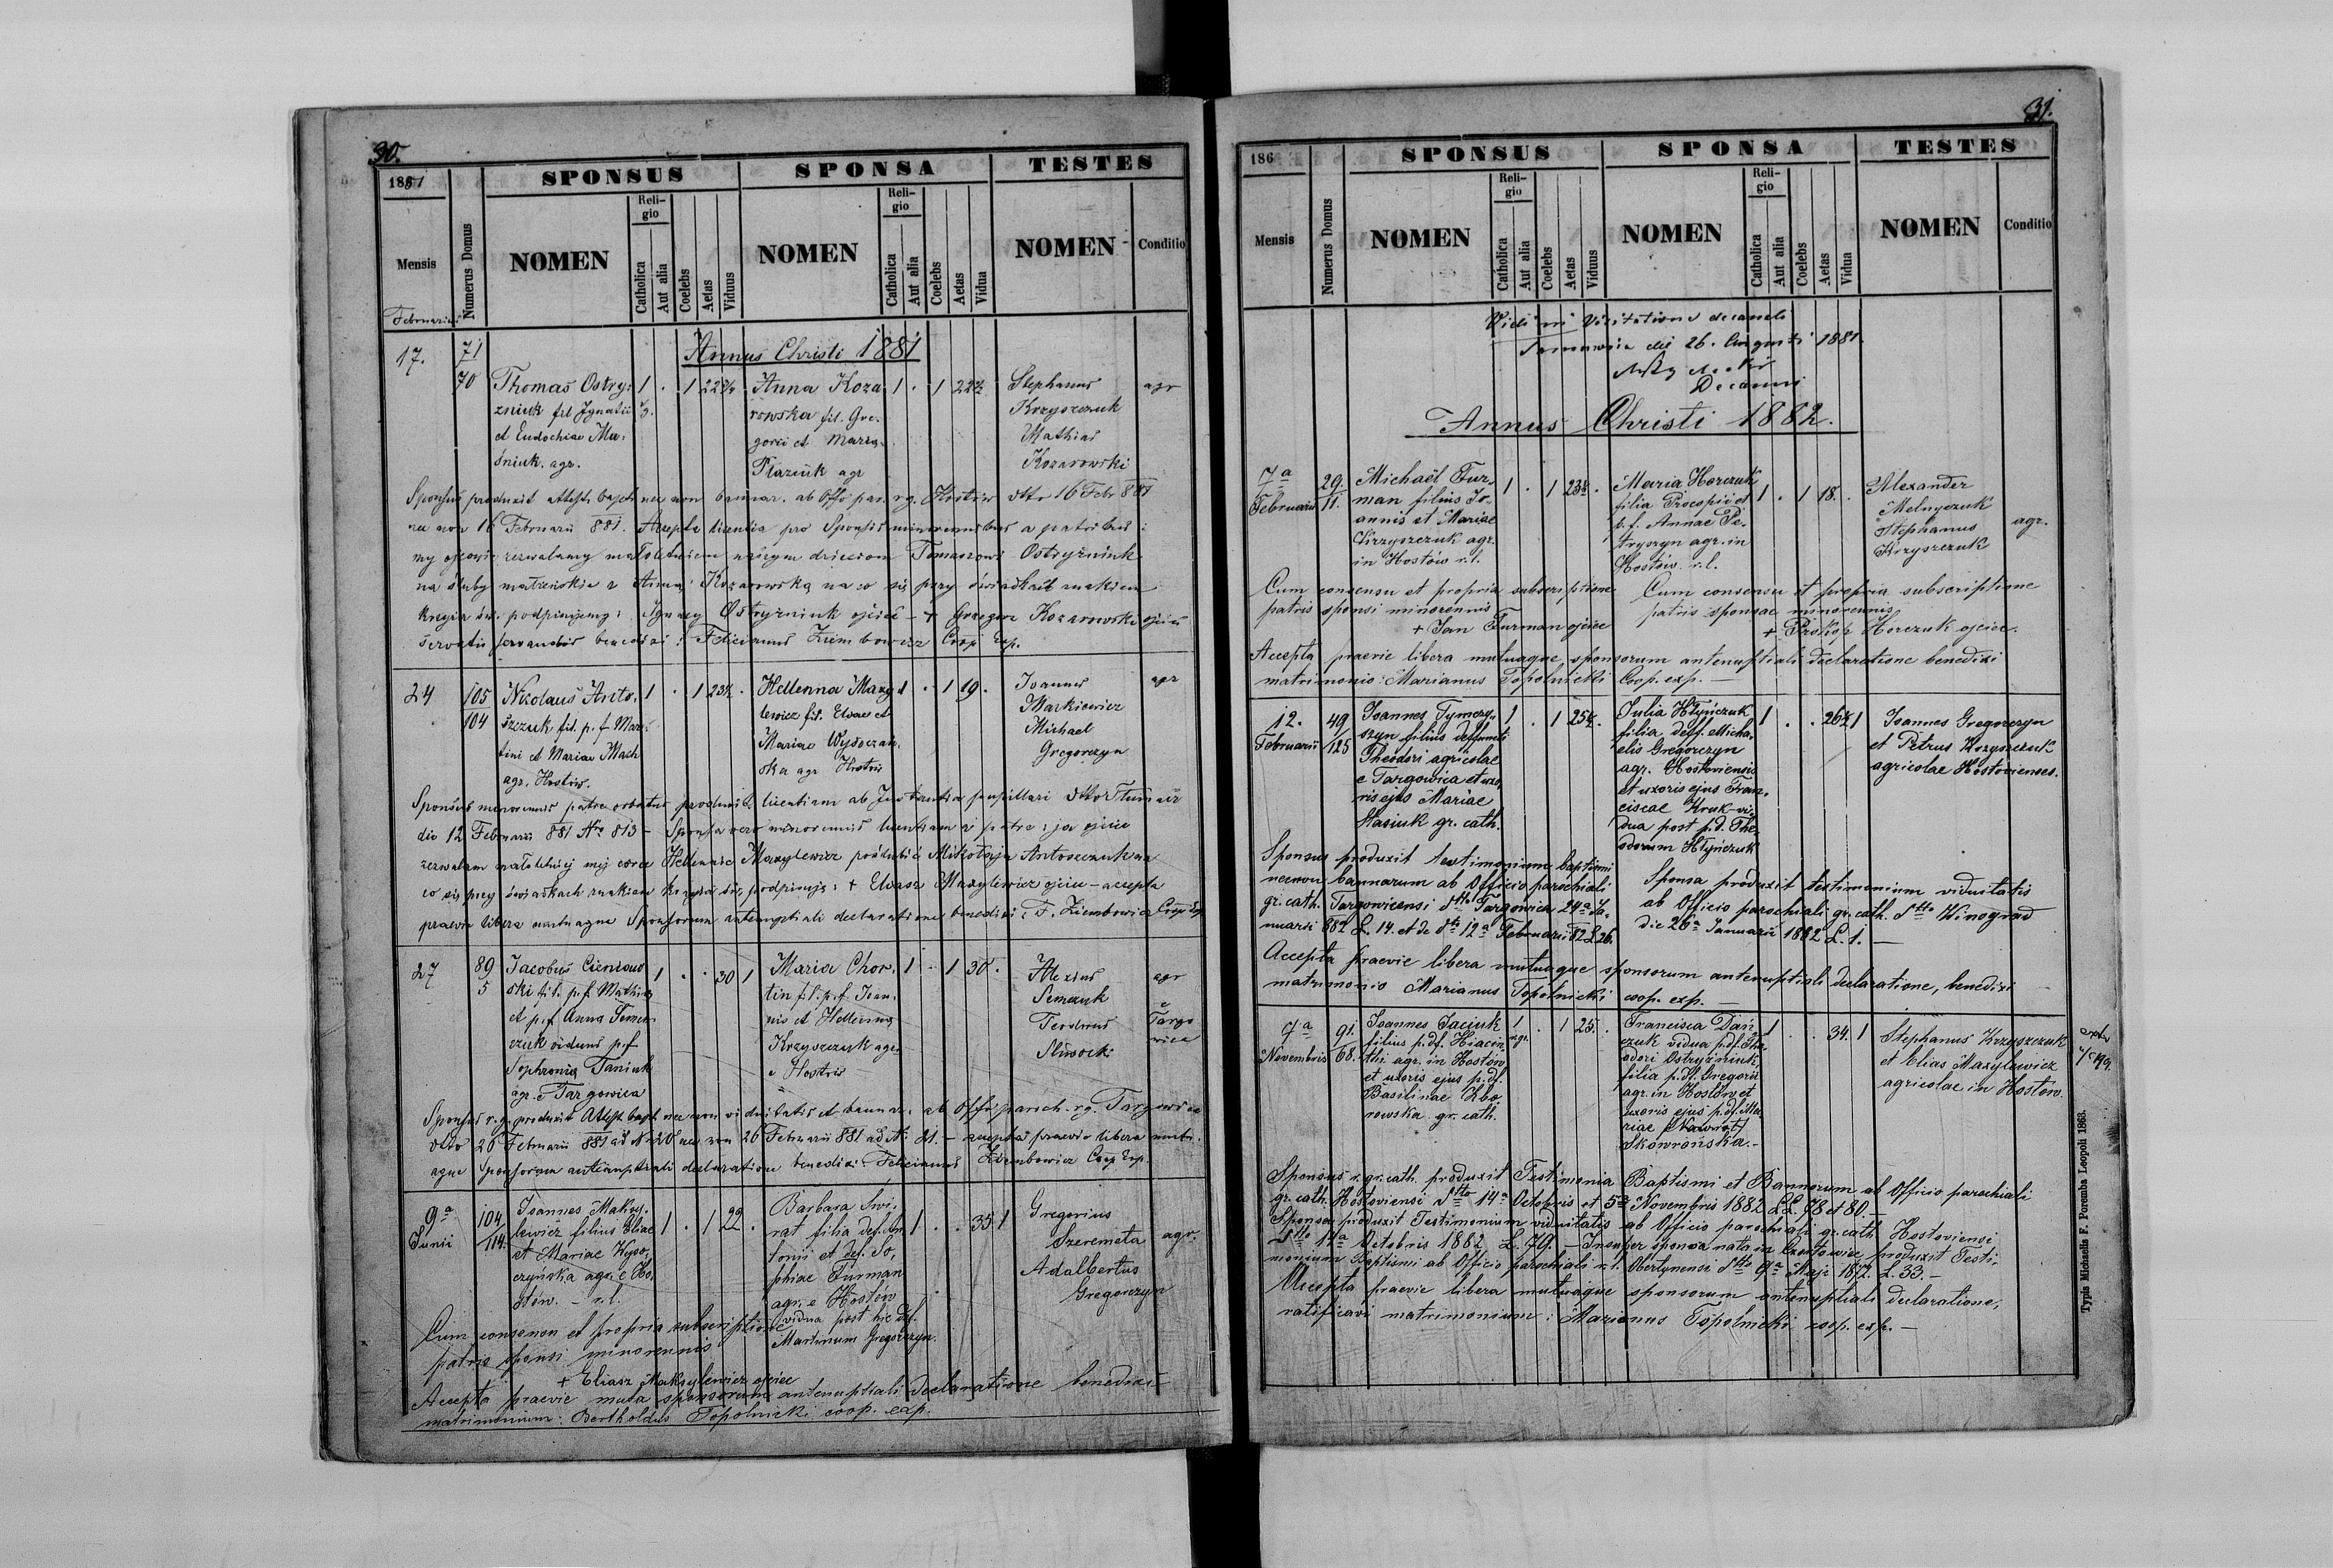 30.
1881
SPONSUS
SPONSA
TESTES
Mensis
Numerus Domus
NOMEN
Religio
Catholica
Aut alia
Coelebs
Aetas
Viduus
NOMEN
Religio
Catholica
Aut alia
Coelebs
Aetas
Vidua
NOMEN
Conditio
Februarius
Annus Christi 1881
17.
71
70
Thomas Ostry-
zniuk fil Ignatii
et Eudochiae Ma-
śniuk. agr.
1 . 1 22½
Anna Koza
rowska fil. Gre-
gorii et Maria
Ptaziuk agr
1 . 1 22½
Stephanus
Krzyszczuk
Mathias
Kozarowski
agr
Sponsus produxit attest. bapt. nec non bannor. ab Offo par. rg. Hostów dtto 16 Febr 881
nec non 16 Februarii 881. Accepta licentia pro Sponsis minorennibus a patribus:
my ojcowie zezwalamy małoletniem naszym dzieciom Tomaszowi Ostryżniuk
na śluby małżeńskie z Anną Kozarowską na co się przy świadkach znakiem
krzyża św. podpisujemy: Ignacy Ostryżniuk ojciec - + Grzegorz Kozarowski ojciec
Servatis servandis benedixi: Felicianus Ziembowicz Coop Exp.
24
105
104
Nicolaus Anto-
szczuk fil. p. f Mar-
tini et Mariae Mach
agr. Hostów.
1 . 1 23½ .
Hellenna Maxy
lewicz fil. Eliae et
Mariae Wysoczań-
ska agr Hostów
1 . 1 19 .
Joannes
Markiewicz
Michael
Gregorczyn
agr
Sponsus minorennis patre orbatus produxit licentiam ab Instantia pupillari dtto Tłumacz
die 12 Februarii 881 Nro 813 - Sponsa vero minorennis licentiam a patre: ja ojciec
zezwalam małoletniej mej córce Hellenie Maxylewicz poślubić Mikołaja Antoszczuka na
co się przy świadkach znakiem krzyża św. podpisuję: + Eliasz Maxylewicz ojciec - accepta
praevie libera mutuaque Sponsorum antenuptiali declaratione benedixi: F. Ziembowicz Coop Exp
27
89
5
Jacobus Cieniaws
ski fil. p. f Mathia
et p. f Anna Semen
czuk viduus p. f
Sophronia Taniuk
agr. e Targowica
1 . . 30 1
Maria Chor-
tin fil. p. f Joan-
nis et Hellenna
Krzyszczuk agr.
e Hostów
1 . 1 30 .
Alexius
Semczuk
Teodorus
Śliwocki
agr
e
Targo
wica
Sponsus r. g. produxit Attest. bapt. nec non viduitatis et bannor. ab Offo paroch. rg. Targowica
dtto 26 Februarii 881 ad N 20 nec non 26 Februarii 881 ad N. 21. - accepta praevie libera mutu-
aque Sponsorum antenuptiali declaratione benedixi: Felicianus Ziembowicz Coop Exp.
9a
Junii
104
114.
Joannes Maksy-
lewicz filius Eliae
et Mariae Wyso-
czyńska agr. e Ho-
stów. - r. l.
1 . 1 22 .
Barbara Swi-
rat filia def. An-
tonii et def. So-
phiae Furman
agr. e Hostów
vidua post hic def.
Martinum Gregorczyn.
1 . . 35 1
Gregorius
Szeremeta
Adalbertus
Gregorczyn
agr.
Cum consensu et propria subscriptione
patris sponsi minorennis
+ Eliasz Maksylewicz ojciec
Accepta praevie muta sponsorum antenuptiali declaratione benedixi
matrimonium: Bertholdus Topolnicki coop. exp.
31.
186
SPONSUS
SPONSA
TESTES
Mensis
Numerus Domus
NOMEN
Religio
Catholica
Aut alia
Coelebs
Aetas
Viduus
NOMEN
Religio
Catholica
Aut alia
Coelebs
Aetas
Vidua
NOMEN
Conditio
Vidi in Visitatione decanali
die 26. Augusti 1881
Decanus
Annus Christi 1882.
7a
Februarii
29.
11.
Michaël Fur-
man filius Jo-
annis et Mariae
Krzyszczuk agr.
in Hostów r. l.
1 . 1 23½ .
Maria Horczuk
filia Procopii et
p. f. Annae Pe-
tryszyn agr. in
Hostów r. l.
1 . 1 18. .
Alexander
Melnyczuk
Stephanus
Krzyszczuk
agr.
Cum consensu et propria subscriptione
patris sponsi minorennis
+ Jan Furman ojciec
Cum consensu et propria subscriptione
patris sponsae minorennis
+ Prokop Horczuk ojciec.
Accepta praevie libera mutuaque sponsorum antenuptiali declaratione benedixi
matrimonio: Marianus Topolnicki Coop. exp. —
12.
Februarii
49
125
Joannes Tymczy-
szyn filius defuncti
Theodori agricolae
e Targowica et uxo-
ris ejus Mariae
Hasiuk gr. cath.
1 . 1 25½ .
Julia Hłyńczuk
filia deff. Micha-
elis Gregorczyn
agr. Hostoviensis
et uxoris ejus Fran-
ciscae Kruk - vi-
dua post p. d. The-
odorum Hłyńczuk
1 . . 26½ 1
Joannes Gregorczyn
et Petrus Krzyszczuk
agricolae Hostovienses.
Sponsus produxit testimonium baptismi
necnon bannorum ab Officio parochiali
gr. cath. Targowicensi dtto Targowica 24a Ja-
nuarii 882 L. 14. et de dto 12a Februarii 82 L 26.
Sponsa produxit testimonium viduitatis
ab Officio parochiali gr. cath. dtto Winograd
die 26a Januarii 1882 L. 1. —
Accepta praevie libera mutuaque sponsorum antenuptiali declaratione, benedixi
matrimonio Marianus Topolnicki coop. exp. —
7a
Novembris
91.
68.
Joannes Jaciuk
filius p. df. Hiacin-
thi agr. in Hostów
et uxoris ejus p. df.
Basilinae Zbo-
rowska gr. cath.
1 . 1 25. .
gr.
Francisca Dań
czuk vidua p. df. The-
odori Ostryżniuk,
filia p. df. Gregorii
agr. in Hostów et
uxoris ejus p. df. Ma-
riae (Nawrot)
Skowrońska. -
1 . . 34. 1
Stephanus Krzyszczuk
et Elias Maxylewicz
agricolae in Hostów.
Sponsus r. gr. cath. produxit Testimonia Baptismi et Bannorum ab Officio parochiali
gr. cath. Hostoviensi dtto 14a Octobris et 5a Novembris 1882 LL. 78 et 80. —
Sponsa produxit Testimonium viduitatis ab Officio parochiali gr. cath Hostoviensi
dtto 14a Octobris 1882 L. 79. — Insuper sponsa nata in Czortowiec produxit Testi-
monium Baptismi ab Officio parochiali r. l. Obertynensi dtto 9a Maji 1872. L. 33. -
Accepta praevie libera mutuaque sponsorum antenuptiali declaratione,
ratificavi matrimonium: Marianus Topolnicki coop. exp. —
Typis Michaelis F. Poremba Leopoli 1863.